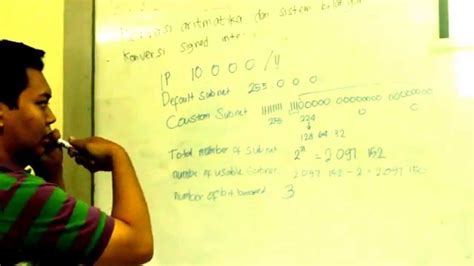 aritmatika dan sistem
Konversi signed
IP 10 0 0 0 /11
Default Subnet 255 0 0 0
Coustom Subnet 11111111 11100000 00000000 00000000
255 224 0 0
128 64 32
Total number of subnet = 2 097 152
of usable 2 097 152 - 2 = 2 097 150
number of 3